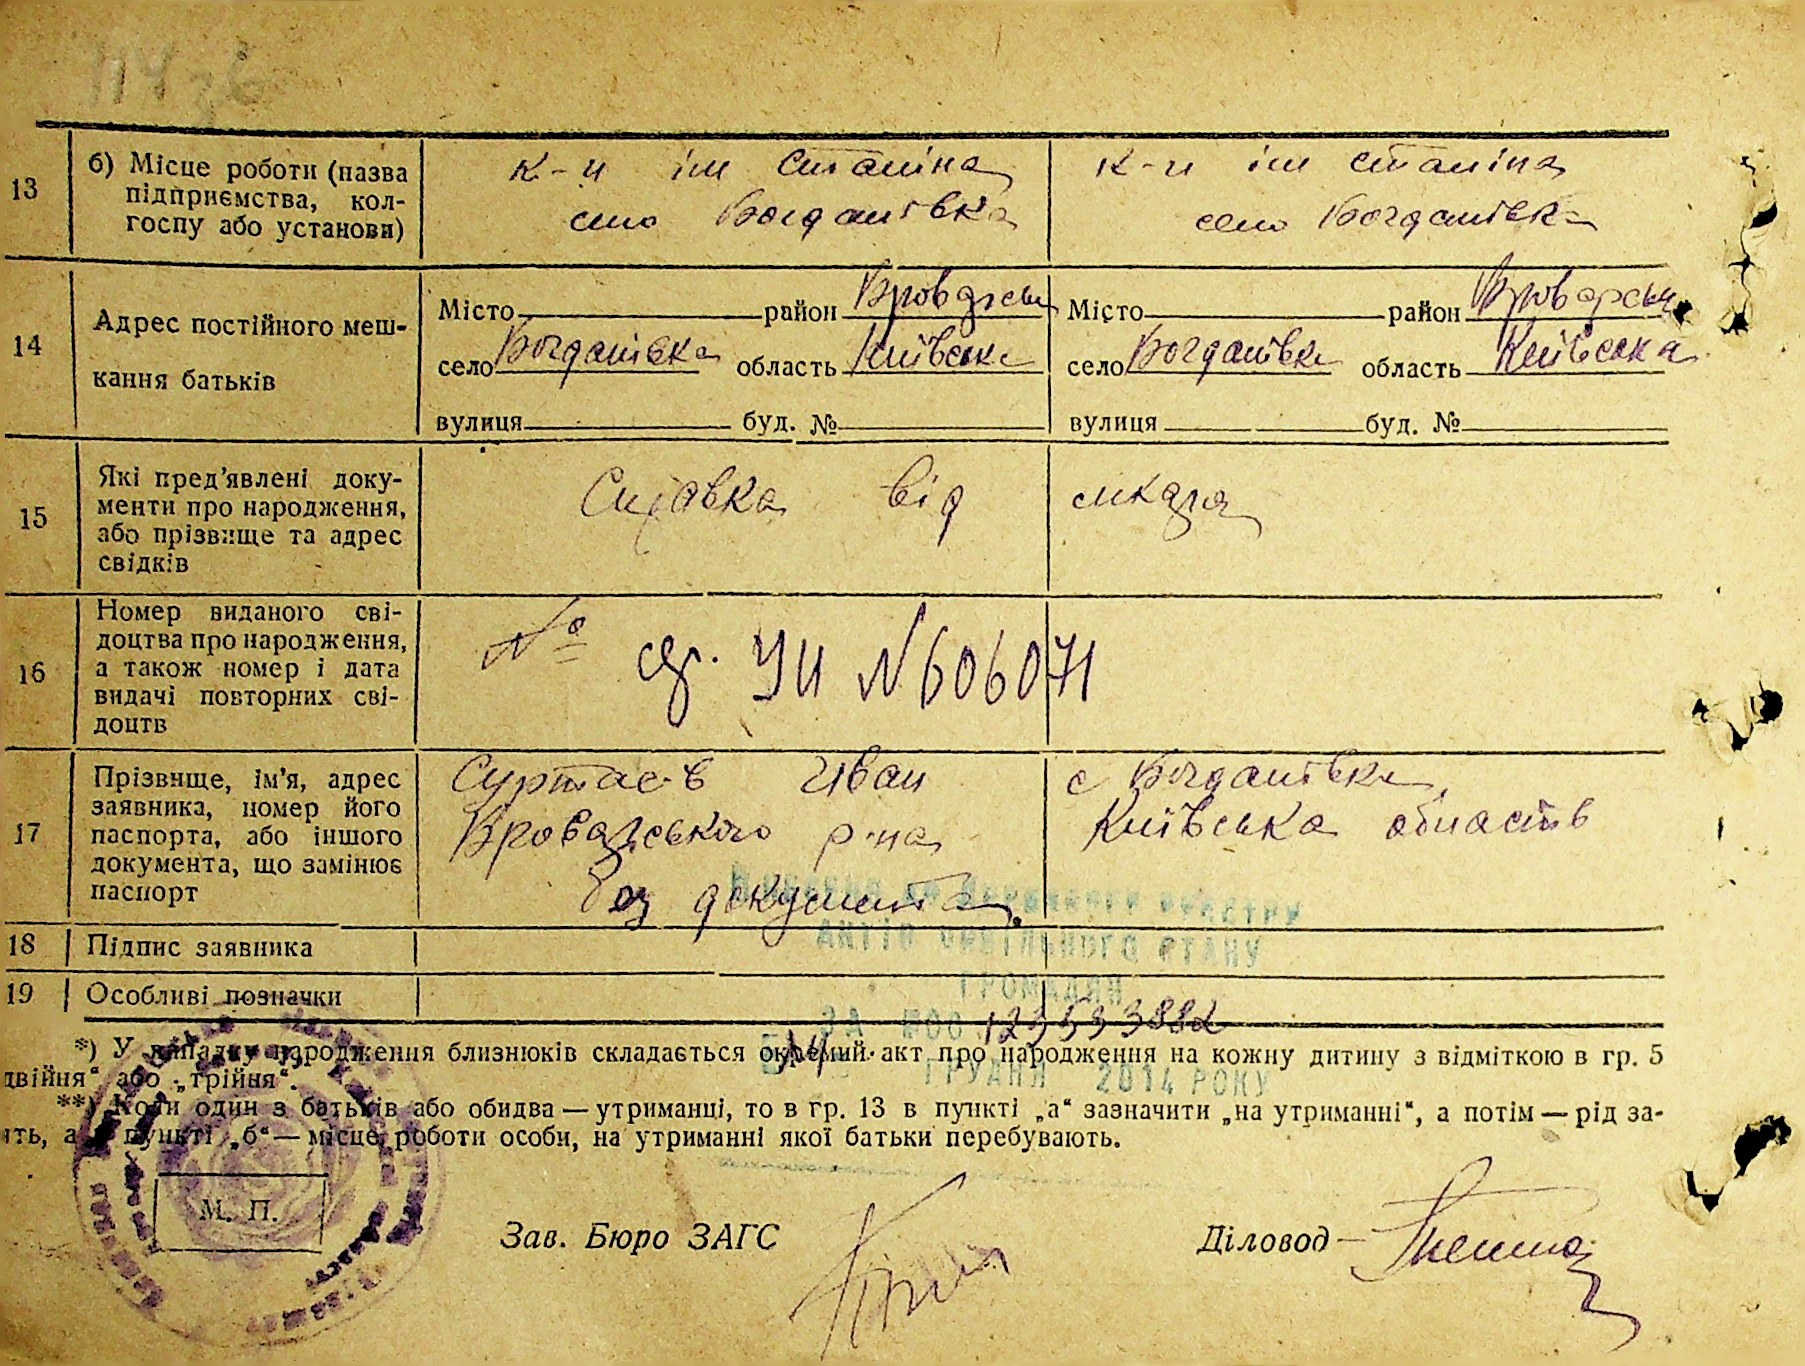 13
б) Місце роботи (назва
підприємства, кол-
госпу або установи)
к-п ім Сталіна
село Богданівка
к-п ім Сталіна
село Богданівка
14
Адрес постійного меш-
кання батьків
Місто район Броварськ
село Богданівка область Київська
вулиця буд. №
Місто район Броварськ
село Богданівка область Київська
вулиця буд. №
15
Які пред'явлені доку-
менти про народження,
або прізвище та адрес
свідків
Справка від лікаря
16
Номер виданого сві-
доцтва про народження,
а також номер і дата
видачі повторних сві-
доцтв
№ УИ № 606071
17
Прізвище, ім'я, адрес
заявника, номер його
паспорта, або іншого
документа, що замінює
паспорт
Іван
Броварського р-на
без документа
с Богданівка
Київська область
18 Підпис заявника
19 Особливі позначки
державного реєстру
актів цивільного стану
громадян
за №00 123533882
14 грудня 2014 року
*) У випадку народження близнюків складається окремий акт про народження на кожну дитину з відміткою в гр. 5
двійня“ або „трійня“.
**) Коли один з батьків або обидва — утриманці, то в гр. 13 в пункті „а“ зазначити „на утриманні“, а потім — рід за-
ять, а в пункті „б“ — місце роботи особи, на утриманні якої батьки перебувають.
М. П.
Зав. Бюро ЗАГС
Діловод